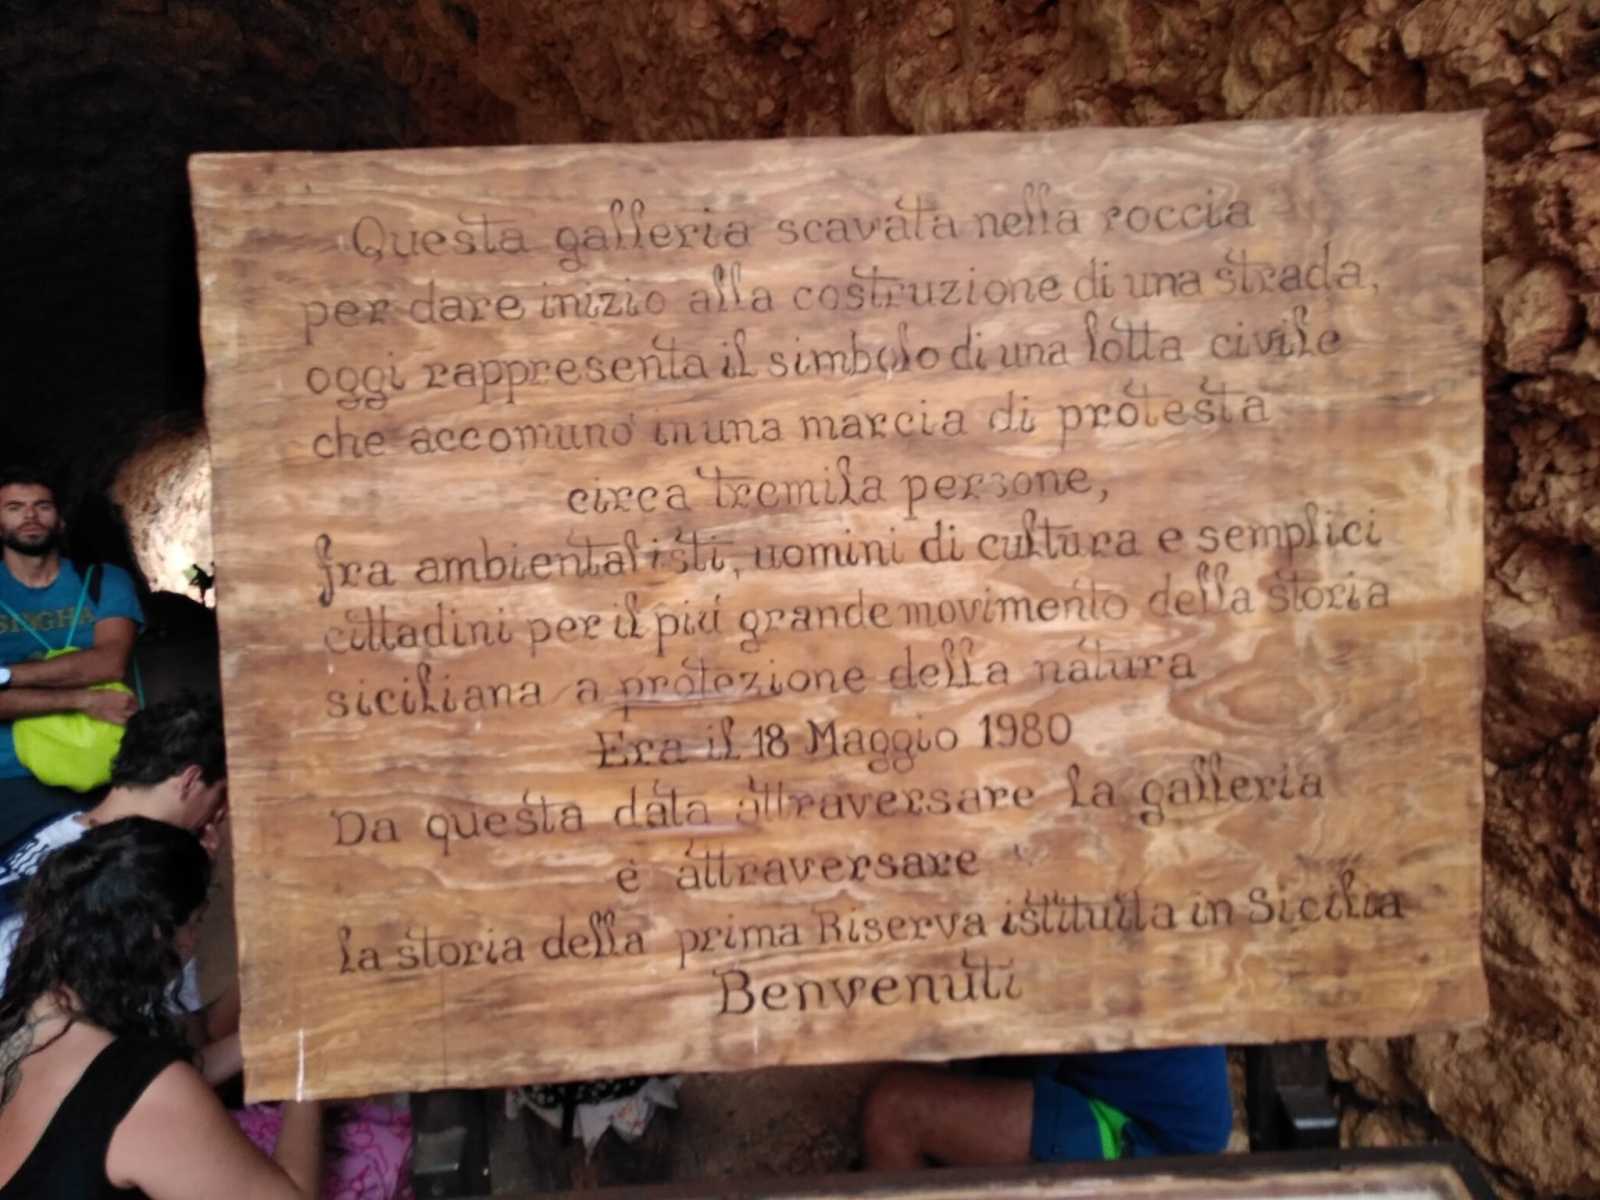 Questa galleria scavata nella roccia
per dare inizio alla costruzione di una strada,
oggi rappresenta il simbolo di una lotta civile
che accomunò in una marcia di protesta
circa tremila persone,
fra ambientalisti, uomini di cultura e semplici
cittadini per il piú grande movimento della storia
siciliana a protezione della natura
Era il 18 Maggio 1980
Da questa data attraversare la galleria
è attraversare
la storia della prima Riserva istituita in Sicilia
Benvenuti
SINGHA